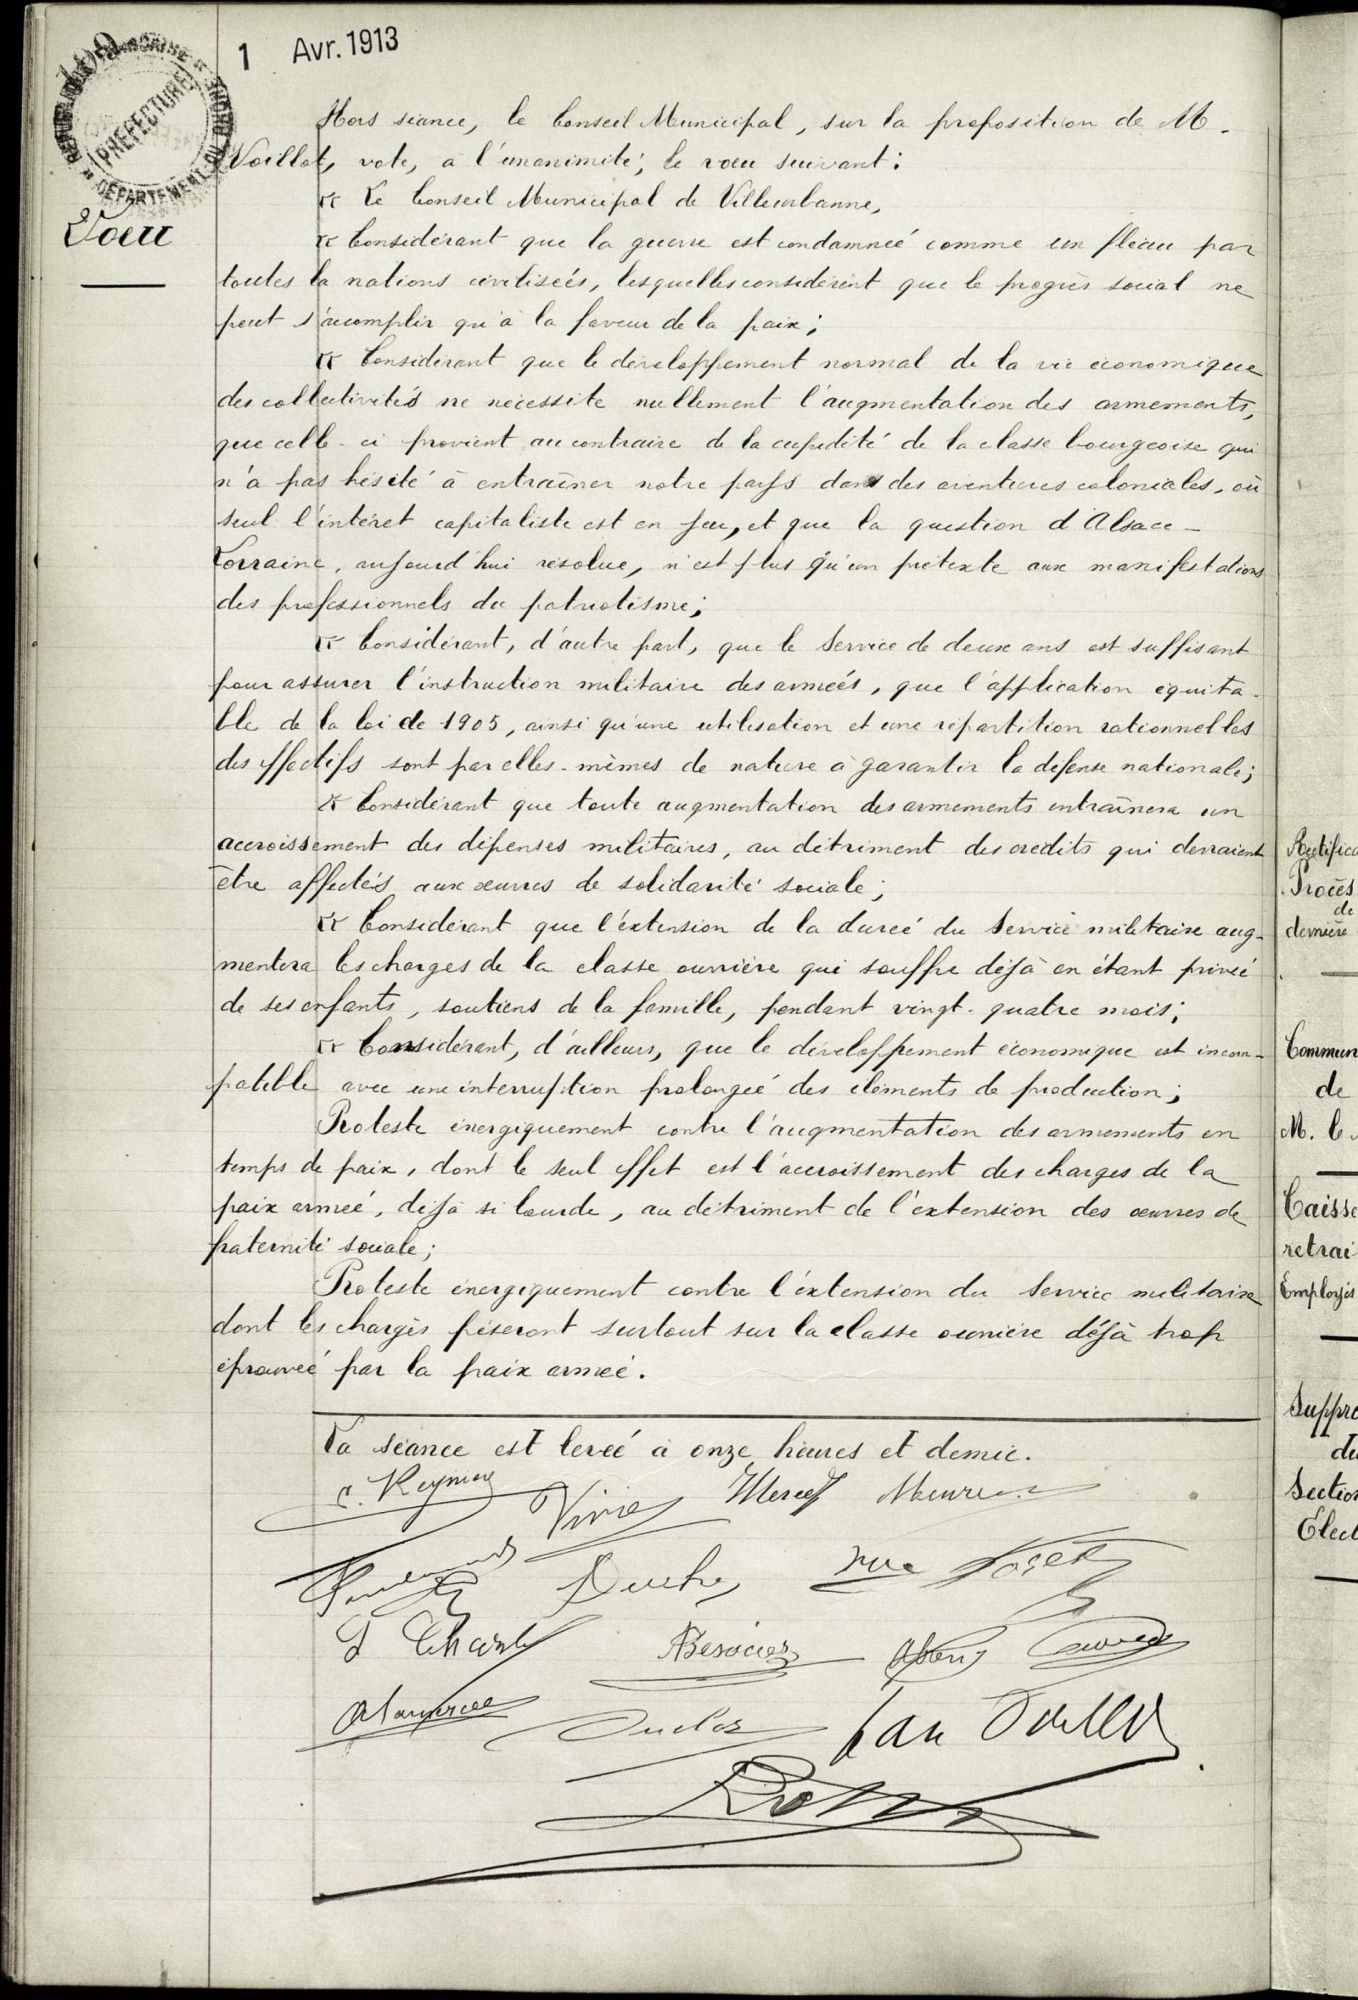 1 Avr. 1913
109
RÉPUBLIQUE FRANÇAISE
PRÉFECTURE
DÉPARTEMENT DU RHÔNE
Voeu
Hors séance, le Conseil Municipal, sur la proposition de M.
Voillot, vote, à l'unanimité, le voeu suivant :
« Le Conseil Municipal de Villeurbanne,
« Considérant que la guerre est condamnée comme un fléau par
toutes la nations civilisées, lesquelles considèrent que le progrès social ne
peut s'accomplir qu'à la faveur de la paix ;
« Considérant que le développement normal de la vie économique
des collectivités ne nécessite nullement l'augmentation des armements,
que celle-ci provient au contraire de la cupidité de la classe bourgeoise qui
n'a pas hésité à entraîner notre pays dans des aventures coloniales, où
seul l'intérêt capitaliste est en jeu, et que la question d'Alsace-
Lorraine, aujourd'hui résolue, n'est plus qu'un prétexte aux manifestations
des professionnels du patriotisme ;
« Considérant, d'autre part, que le Service de deux ans est suffisant
pour assurer l'instruction militaire des armées, que l'application équita-
ble de la loi de 1905, ainsi qu'une utilisation et une répartition rationnelles
des effectifs sont par elles-mêmes de nature à garantir la défense nationale ;
« Considérant que toute augmentation des armements entraînera un
accroissement des dépenses militaires, au détriment des crédits qui devraient
être affectés aux œuvres de solidarité sociale ;
« Considérant que l'extension de la durée du Service militaire aug-
mentera les charges de la classe ouvrière qui souffre déjà en étant privée
de ses enfants, soutiens de la famille, pendant vingt-quatre mois ;
« Considérant, d'ailleurs, que le développement économique est incom-
patible avec une interruption prolongée des éléments de production ;
Proteste énergiquement contre l'augmentation des armements en
temps de paix, dont le seul effet est l'accroissement des charges de la
paix armée, déjà si lourde, au détriment de l'extension des œuvres de
fraternité sociale ;
Proteste énergiquement contre l'extension du Service militaire
dont les charges pèseront surtout sur la classe ouvrière déjà trop
éprouvée par la paix armée.
La séance est levée à onze heures et demie.
Jean Voillot
Rectifica
Procès
de
dernière
Commun
de
M. le
Caisse
retrai
Employés
Suppre
du
Section
Elect